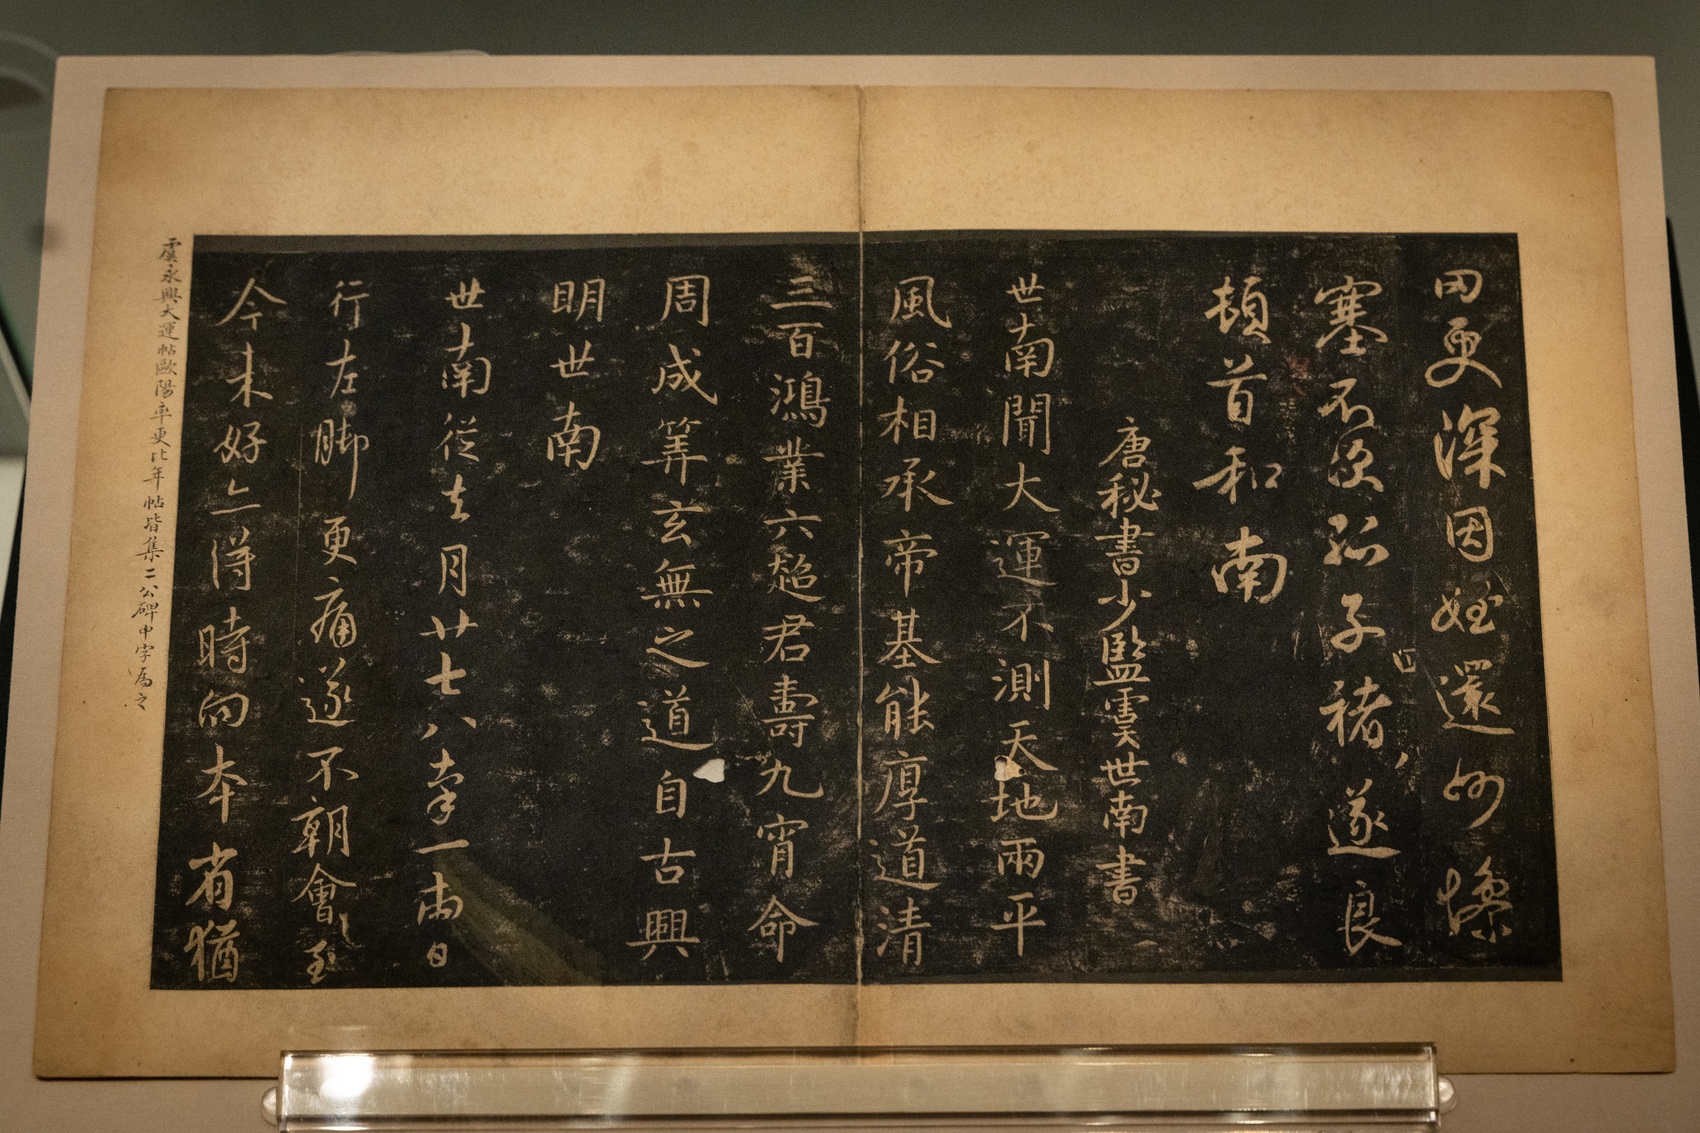 因更深因姪還州慘
塞不次孤子褚遂良
頓首和南
唐秘書少監虞世南書
世南聞大運不測天地兩平
風俗相承帝基能厚道清
三百鴻業六超君壽九宵命
周成筭玄無之道自古興
明世南
世南從去月廿七八率一兩日
行左脚更痛遂不朝會至
今未好亦得時向本省猶
虞永興大運帖歐陽率更比年帖皆集二公碑中字為之